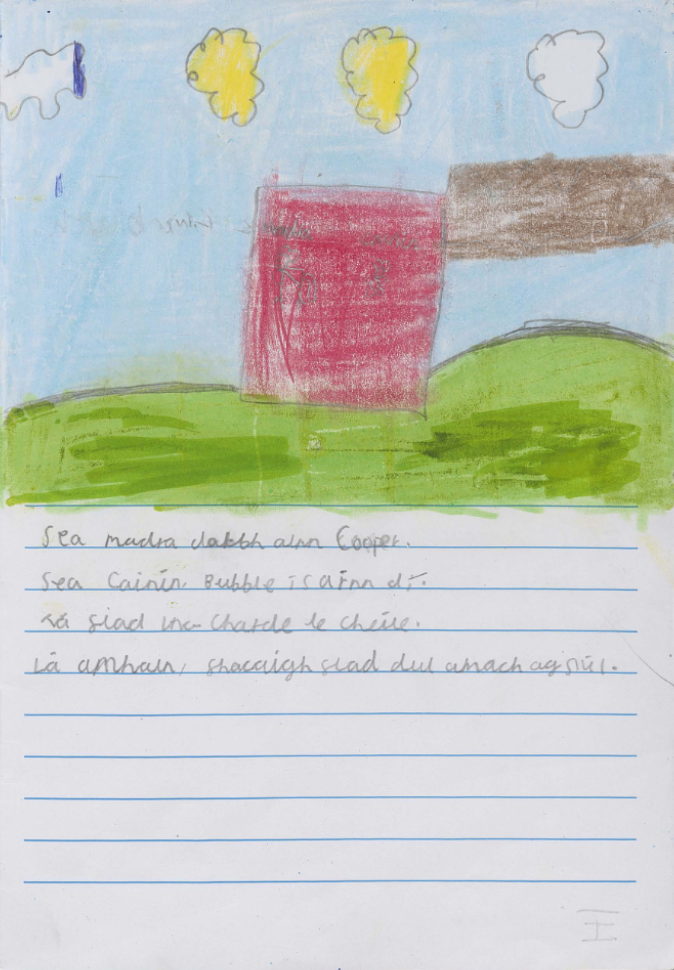 Sea madra darbh ainm Cooper.
Sea Cainín, Bubble is ainm dí.
Tá siad ina Chairde le chéile.
Lá amháin, shocraigh siad dul amach ag siúl.